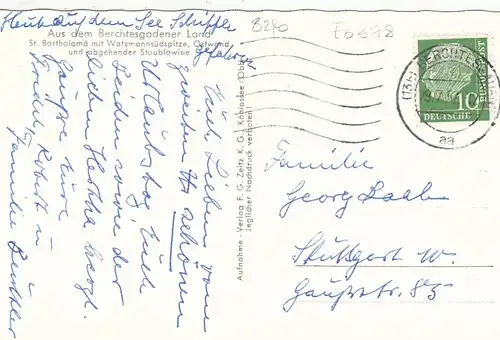 Heut auf dem See Schiffer
gefahren
Aus dem Berchtesgadener Land
St. Bartholomä mit Watzmannsüdspitze, Ostwand
und abgehender Staublawine
8240
Euch Lieben vom
schönen
Urlaubstag Euch
Beiden sowie der
lieben Hertha herzl.
Grüsse Eure
Frieda, Robert u.
Familie
Aufnahme - Verlag F. G. Zeitz K. G., Königssee/Obb.
Jeglicher Nachdruck verboten
(13b) BERCHTESGADEN
aa
DEUTSCHE
BUNDESPOST
10
Familie
Georg
Stuttgart W.
Gaußstr. 85